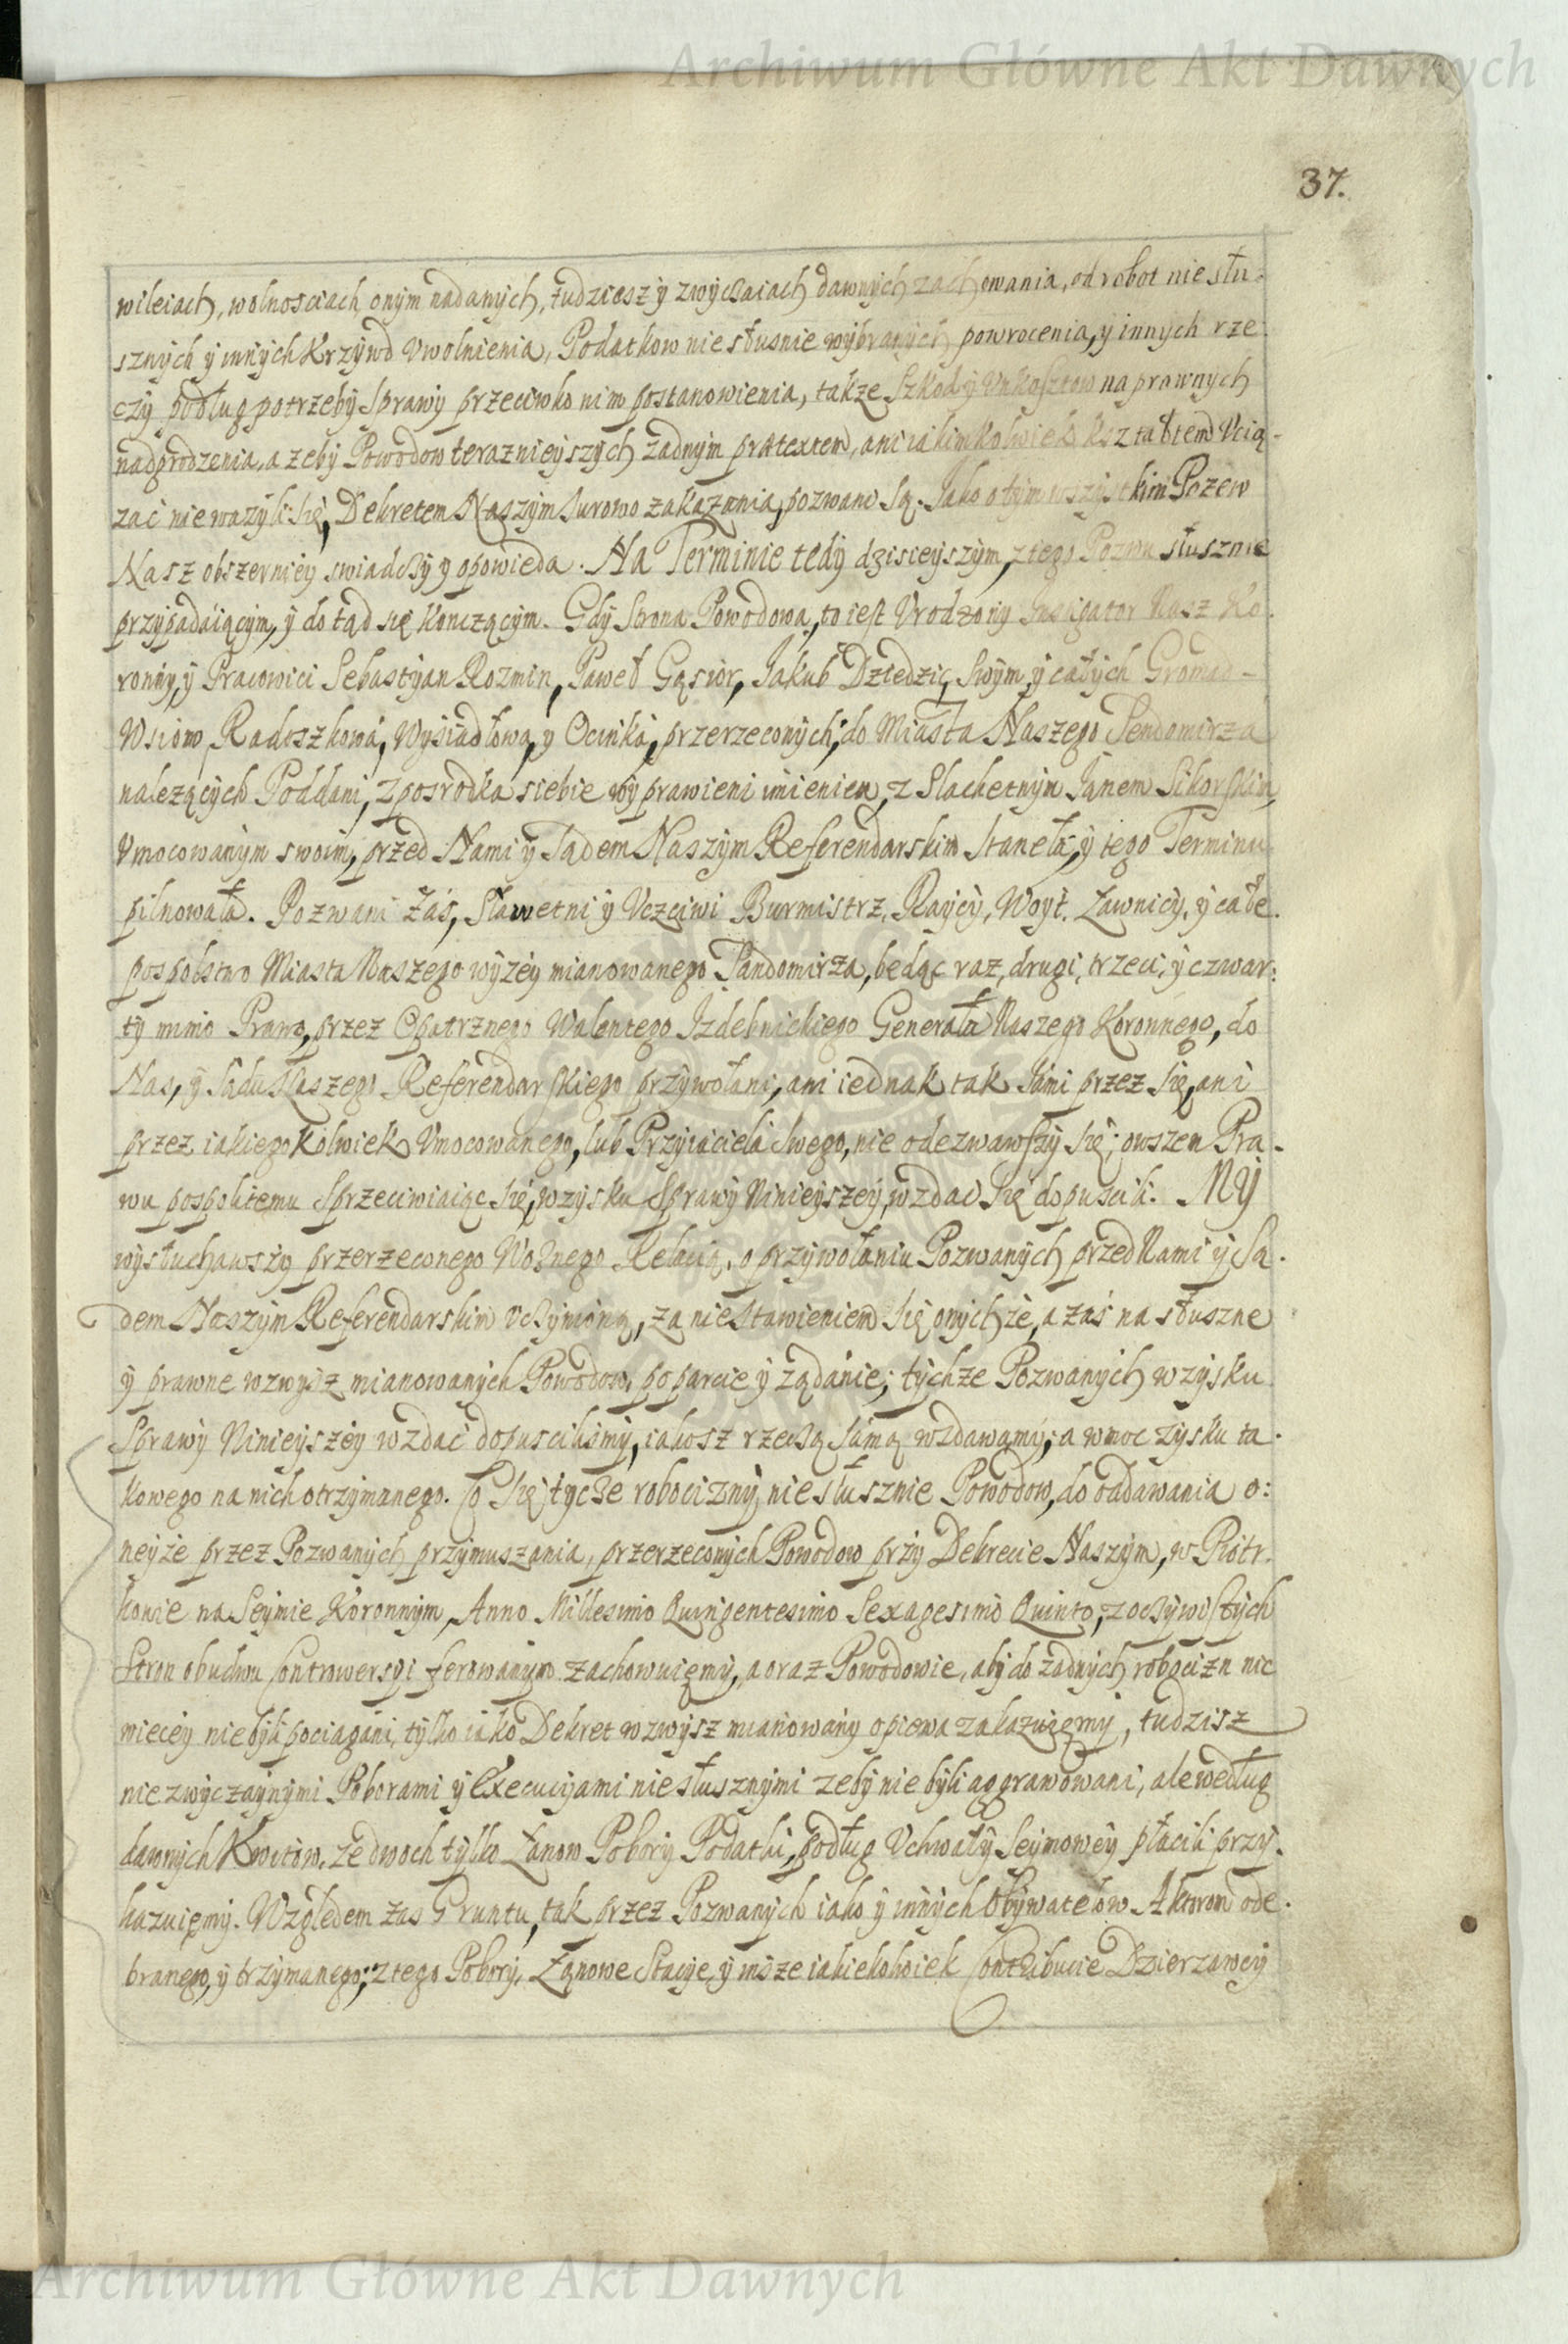 Archiwum Główne Akt Dawnych
37.
wileiach, wolnosciach onym nadanych, tudziesz y zwyczaiach dawnych zachowania, od robot nie słu-
sznych y innych Krzywd Vwolnienia, Podatkow nie słusnie wybranych powrocenia, y innych rze-
czy podług potrzeby Sprawy przeciwko nim postanowienia, takze Szkod y Vnkosztow na prawnych
nadgrodzenia, a zeby Powodow terazniejszych zadnym prætextem, ani iakimkolwiek kształtem Vcią-
zać nie wazyli się, Dekretem Naszym surowo zakazania, pozwani są. Jako o tym wszystkim Pozew
Nasz obszerniey swiadczy y opowieda. Na Terminie tedy dzisieyszym, z tego Pozwu słusznie
przypadaiącym, y do tąd się konczącym. Gdy Strona Powodowa, to iest Vrodzony Instigator Nasz Ko-
ronny, y Pracowici Sebastyan Rozmin, Paweł Gąsior, Jakub Dziedzic, Swym y całych Gromad
Wsiow Radoszkowa, Wysiadłowa, y Ocinka, przerzeconych, do Miasta Naszego Sendomirza
nalezących Poddani, z posrodka siebie wyprawieni imieniem, z Slachetnym Janem Sikorskim,
Vmocowanym swoim, przed Nami y Sądem Naszym Referendarskim Stanęła, y tego Terminu
pilnowała. Pozwani zaś, Sławetni y Vczciwi Burmistrz, Raycy, Woyt, Ławnicy, y całe
pospolstwo Miasta Naszego wyzey mianowanego Sandomirza, będąc raz, drugi, trzeci, y czwar:
ty mimo Prawo, przez Opatrznego Walentego Izdebnickiego Generała Naszego Koronnego, do
Nas, y Sądu Naszego Referendarskiego przywołani, ani iednak tak sami przez się, ani
przez iakiegokolwiek Vmocowanego, lub Przyiaciela swego, nie odezwawszy się; owszem Pra-
wu pospolitemu sprzeciwiaiąc się, w zysku Sprawy Ninieyszey, wzdać się dopuscili. MY
wysłuchawszy przerzeconego Woznego Relacią, o przywołaniu Pozwanych przed Nami y Są-
dem Naszym Referendarskim Vczynioną, za nie stawieniem się onychze, a zaś na słuszne
y prawne wzwysz mianowanych Powodow, poparcie y ządanie; tychze Pozwanych w zysku
Sprawy Ninieyszey wzdać dopuscilismy, iakosz rzeczą samą wzdawamy; a w moc zysku ta-
kowego na nich otrzymanego. Co się tycze robocizny, nie słusznie Powodow, do oddawania o:
neyze przez Pozwanych przymuszania, przerzeconych Powodow przy Dekrecie Naszym, w Piotr-
kowie na Seymie Koronnym, Anno Millesimo Quingentesimo Sexagesimo Quinto, z oczywistych
Stron obudwu Controwersyi ferowanym zachowuięmy, a oraz Powodowie, aby do zadnych robocizn nic
więcey nie byli pociągani, tylko iako Dekret wzwysz mianowany opiewa zakazuięmy, tudzisz
nie zwyczaynymi Poborami y Execucyjami nie słusznymi zeby nie byli aggrawowani, ale według
dawnych Kwitow, ze dwoch tylko Łanow Pobory Podatki, podług Vchwały Seymowey płacili przy-
kazuięmy. Względem zas Gruntu, tak przez Pozwanych iako y innych Obywatelow Aktorom ode-
branego, y trzymanego; z tego Pobory, Łanowe Stacye, y insze iakiekolwiek Contribucie Dzierzawcy
Archiwum Główne Akt Dawnych